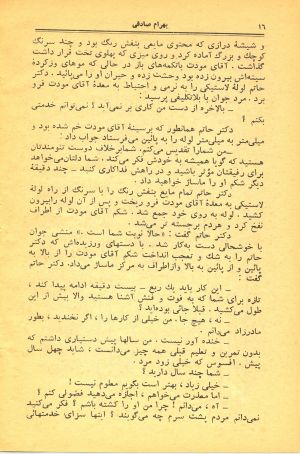 ۱۶ بهرام صادقی
و شیشهٔ درازی که محتوی مایعی بنفش رنگ بود و چند سرنگ
کوچک و بزرگ آماده کرد و روی میزی که پهلوی تخت قرار داشت
گذاشت. آقای مودت باتکمه‌های باز در حالی که موهای وزکردهٔ
سینه‌اش بیرون زده بود وحشت زده و حیران او را می‌پائید. دکتر
حاتم لولهٔ لاستیکی را به نرمی و احتیاط به معدهٔ آقای مودت فرو
برد. مرد جوان با بلاتکلیفی پرسید:
ـ بالاخره از دست من کاری بر نمی‌آید؟ نمی‌توانم خدمتی
بکنم؟
دکتر حاتم همانطور که برسینهٔ آقای مودت خم شده بود و
میلی‌متر به میلی‌متر لوله را به پائین می‌فرستاد جواب داد:
ـ من شما را تقدیس می‌کنم، شما برخلاف دوست تنومندتان
هستید که گویا همیشه به خودش فکر می‌کند. شما دلتان می‌خواهد
برای رفیقتان مؤثر باشید و در راهش فداکاری کنید ـ چند دقیقهٔ
دیگر شکم او را ماساژ خواهید داد.
دکتر حاتم تمام مایع بنفش رنگ را با سرنگ از راه لولهٔ
لاستیکی به معدهٔ آقای مودت فرو ریخت و پس از آن لوله رابیرون
کشید. لوله به روی خود جمع شد. شکم آقای مودت از اطراف
نفخ کرد و هردم برجسته تر می‌شد.
دکتر حاتم گفت: «حالا نوبت شما است.» منشی جوان
با خوشحالی دست به‌کار شد. با دستهای ورزیده‌ای که دکتر
حاتم را به شک و تعجب انداخت شکم آقای مودت را از بالا به
پائین و از پائین به بالا وازاطراف به مرکز ماساژ می‌داد. دکتر حاتم
گفت:
ـ این کار باید یک ربع ـ بیست دقیقه ادامه پیدا کند،
تازه برای شما که به قوت و فنش آشنا هستید والا بیش از این
طول می‌کشید. قبلا جائی بوده‌اید؟
ـ نه، هیچ جا. من خیلی از کارها را، اگر نخندید، بطور
مادرزاد می‌دانم.
ـ خنده آور نیست. من سالها پیش دستیاری داشتم که
بدون تمرین و تعلیم قبلی همه چیز می‌دانست، شاید چهل سال
پیش. افسوس که خیلی زود مرد.
ـ شما چند سال دارید؟
ـ خیلی زیاد، بهتر است بگویم معلوم نیست!
ـ اما معذرت می‌خواهم، اجازه می‌دهید فضولی کنم؟
ـ آه، می‌دانم! چرا من او را کشته باشم؟ فکر می‌کنید
نمی‌دانم مردم پشت سرم چه می‌گویند؟ اینها سزای خدمتهائی